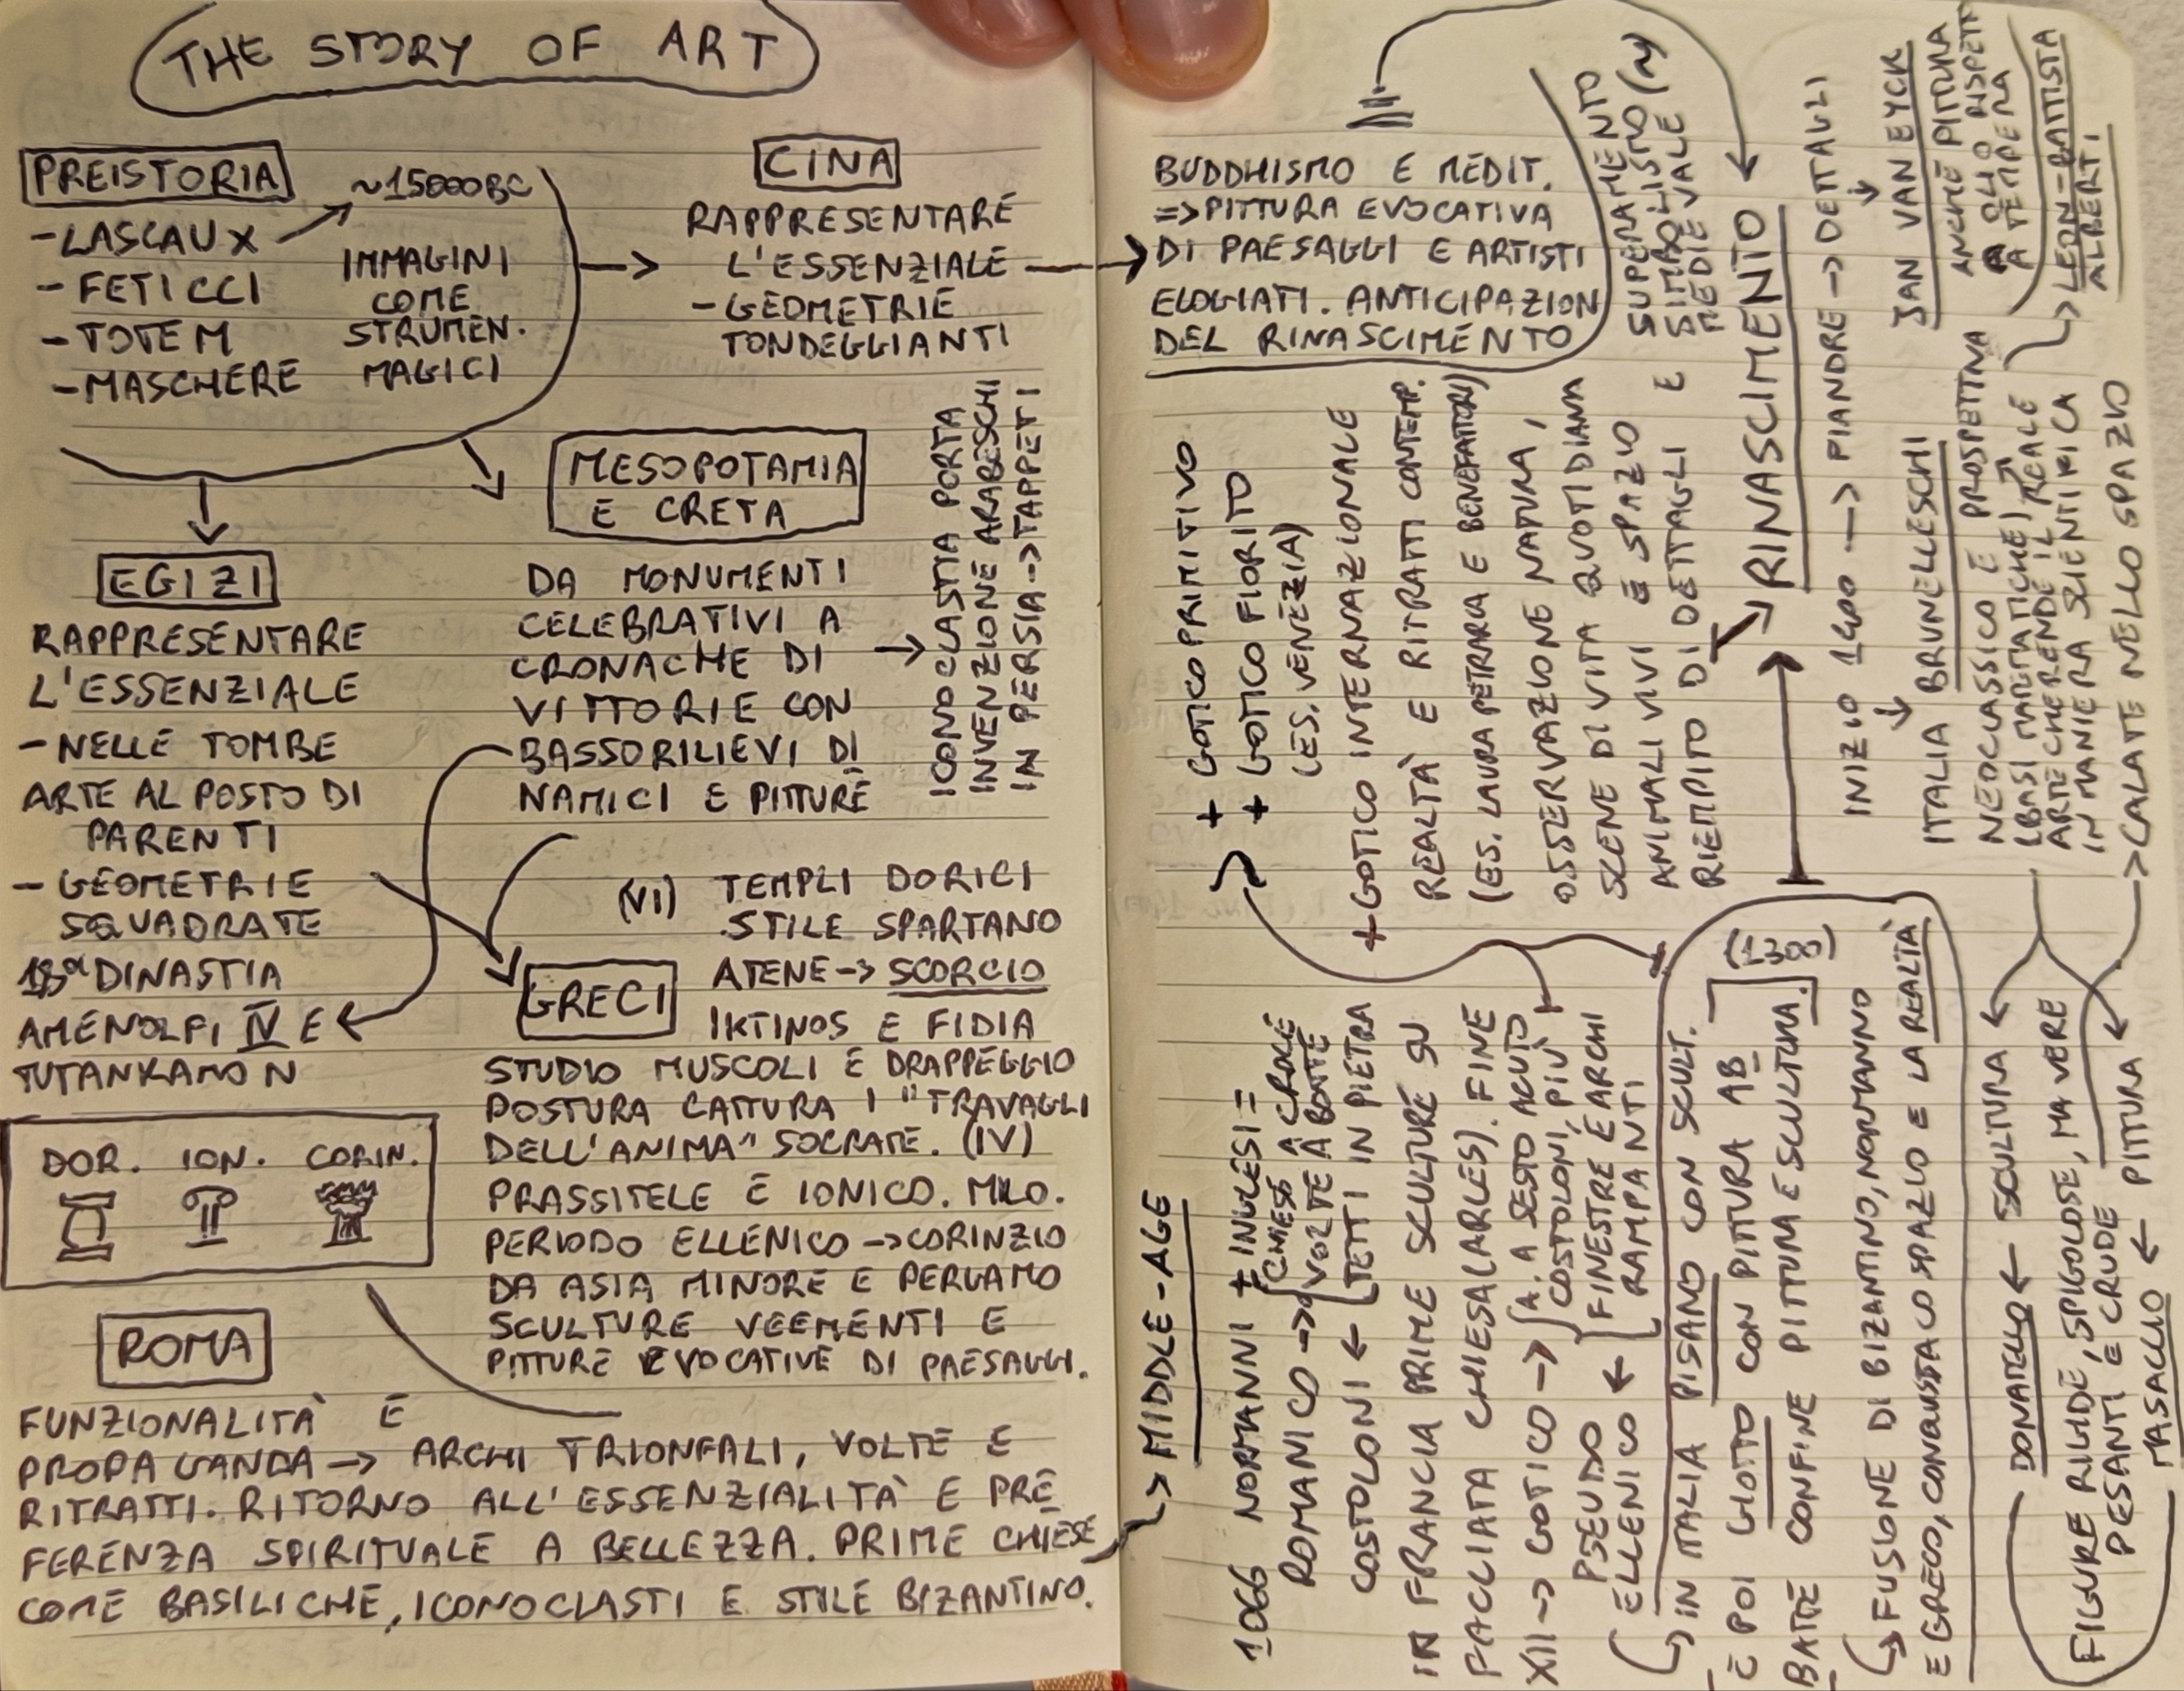 THE STORY OF ART
PREISTORIA
~15000BC
-LASCAUX
- FETICCI
- TOTEM
-MASCHERE
IMMAGINI
COME
STRUMEN.
MAGICI
CINA
RAPPRESENTARE
L'ESSENZIALE
- GEOMETRIE
TONDEGGIANTI
MESOPOTAMIA
E CRETA
DA MONUMENTI
CELEBRATIVI A
CRONACHE DI
VITTORIE CON
BASSORILIEVI DI
NAMICI E PITTURE
ICONOCLASTIA PORTA
INVENZIONE ARABESCHI
IN PERSIA -> TAPPETI
EGIZI
RAPPRESENTARE
L'ESSENZIALE
- NELLE TOMBE
ARTE AL POSTO DI
PARENTI
- GEOMETRIE
SQUADRATE
18a DINASTIA
AMENOLFI IV E
TUTANKAMON
(VI) TEMPLI DORICI
STILE SPARTANO
GRECI
ATENE -> SCORCIO
IKTINOS E FIDIA
STUDIO MUSCOLI E DRAPPEGGIO
POSTURA CATTURA I "TRAVAGLI
DELL'ANIMA" SOCRATE. (IV)
PRASSITELE E IONICO. MILO.
PERIODO ELLENICO -> CORINZIO
DA ASIA MINORE E PERGAMO
SCULTURE VEEMENTI E
PITTURE EVOCATIVE DI PAESAGGI.
DOR. ION. CORIN.
ROMA
FUNZIONALITÀ E
PROPAGANDA -> ARCHI TRIONFALI, VOLTE E
RITRATTI. RITORNO ALL'ESSENZIALITÀ E PRE
FERENZA SPIRITUALE A BELLEZZA. PRIME CHIESE
COME BASILICHE, ICONOCLASTI E STILE BIZANTINO.
BUDDHISMO E MEDIT.
=> PITTURA EVOCATIVA
DI PAESAGGI E ARTISTI
ELOGIATI. ANTICIPAZION
DEL RINASCIMENTO
-> MIDDLE-AGE
1066 NORMANNI + INGLESI =
ROMANICO -> CHIESE A CROCE
VOLTE A BOTTE
COSTOLONI <- TETTI IN PIETRA
IN FRANCIA PRIME SCULTURE SU
FACCIATA CHIESA (ARLES). FINE
XII -> GOTICO -> A. A SESTO ACUTO
COSTOLONI, PIÙ
FINESTRE E ARCHI
RAMPANTI
PSEUDO
ELLENICO <-
-> IN ITALIA PISANO CON SCULT.
E POI GIOTTO CON PITTURA AB
BATTE CONFINE PITTURA E SCULTURA.
(1300)
-> FUSIONE DI BIZANTINO, NORMANNO
E GRECO, CONQUISTA CO SPAZIO E LA REALTÀ
+ GOTICO PRIMITIVO
+ GOTICO FIORITO
(ES. VENEZIA)
+ GOTICO INTERNAZIONALE
REALTÀ E RITRATTI CONTEMP.
(ES. LAURA PETRARCA E BENEFATTORI)
OSSERVAZIONE NATURA,
SCENE DI VITA QUOTIDIANA
ANIMALI VIVI E SPAZIO
RIEMPITO DI DETTAGLI E
SUPERAMENTO
SIMBOLISMO
MEDIEVALE
RINASCIMENTO
INIZIO 1400 --> FIANDRE -> DETTAGLI
JAN VAN EYCK
ANCHE PITTURA
A OLIO RISPETT
A TEMPERA
ITALIA BRUNELLESCHI
NEOCLASSICO E PROSPETTIVA
(BASI MATEMATICHE)
ARTE CHE RENDE IL REALE
IN MANIERA SCIENTIFICA
-> LEON-BATTISTA
ALBERTI
-> CALATE NELLO SPAZIO
DONATELLO <- SCULTURA
FIGURE RIGIDE, SPIGOLOSE, MA VERE
PESANTI E CRUDE
MASACCIO <- PITTURA